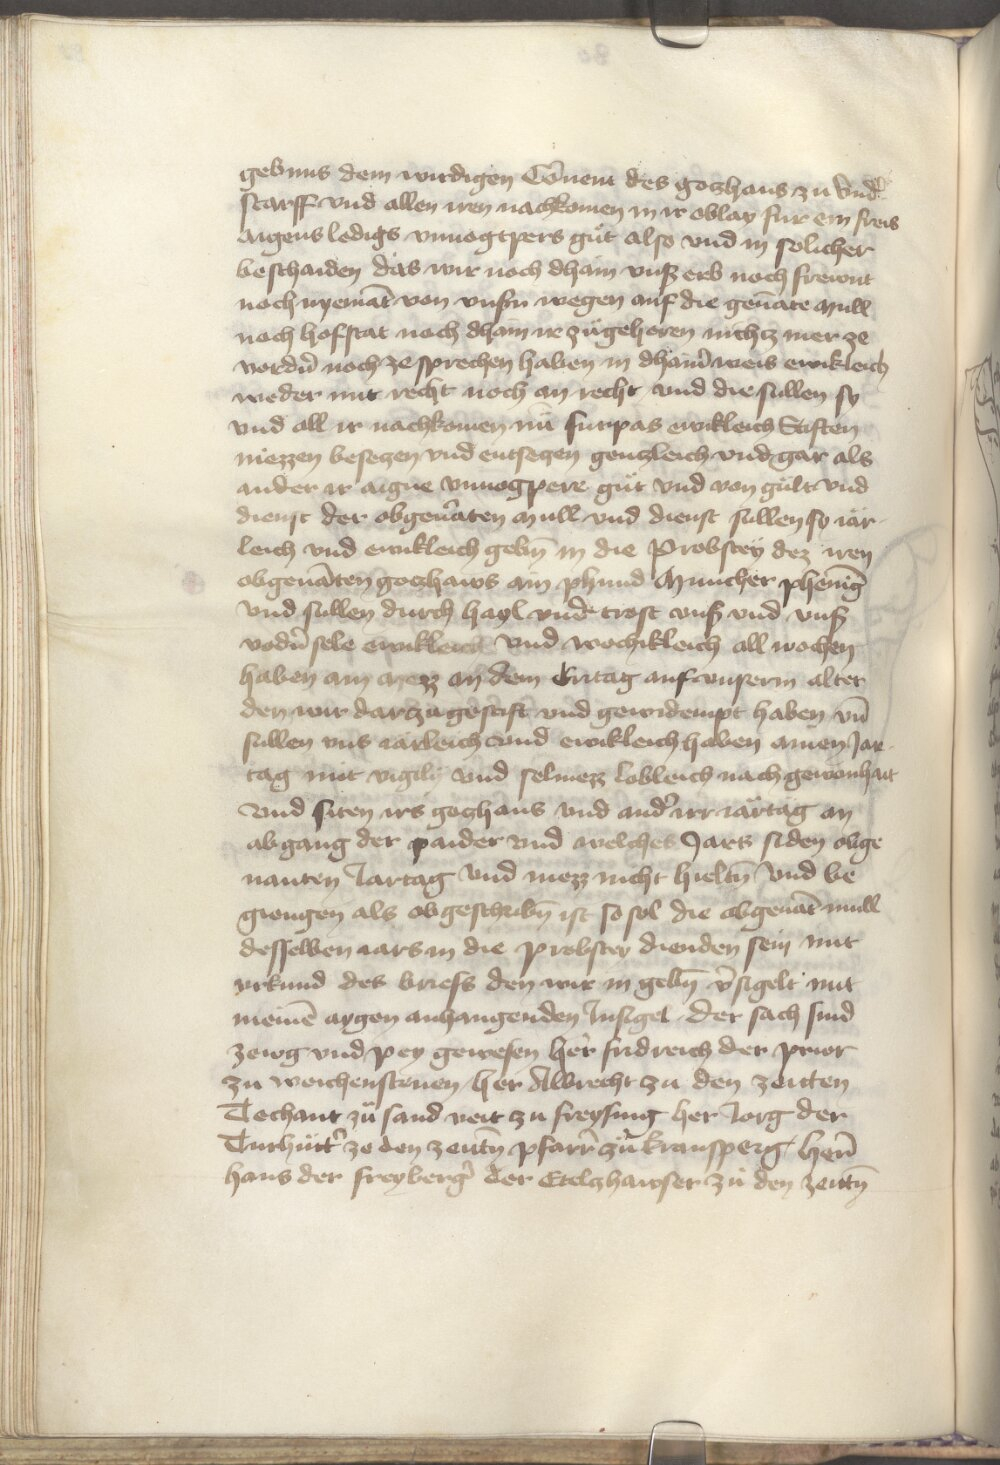 gebnus dem wirdigen Co̅nent des gotzhaus zu Vnd̕
starff vnd allen iren nachkomen in ir oblay fur ein freis
aigens ledigs vnuogtpers gůt also vnd in solicher
beschaiden das wir noch dhain vnß erb noch frewnt
noch nyema̅t von vnßn wegen auf die gena̅te mull
noch hofstat noch dhain ir zůgehoren nichtz mer ze
vordn̅ noch ze sprechen haben in dhain̕ weis ewikleich
weder mit recht noch an recht vnd die sullen sy
vnd all ir nachkomen nu̅ furpas ewikleich Stiften
niezzen besetzen vnd entsetzen gentzleich vnd gar als
ander ir aigne vnuogpere gůt vnd von gůlt vnd
dienst der obgen̕aten mull vnd dienst sullen sy iar-
leich vnd ewikleich gebn̅ in die Probstey dez iren
obgena̅ten gotzhaws ain phund Muncher phenig̅
vnd sullen durch hayl vnd trost vnß vnd vnß
vodn̅ sele ewikleich vnd wochikleich all wochen
haben ain mezz an dem Eritag auf vnserm alter
den wir darzu gestift vnd gewidempt haben vn̅
sullen vns iarleich vnd ewikleich haben ainen Jar-
tag mit vigilij vnd selmezz lobleich nach gewonhait
vnd siten irs gotzhaus vnd and̕ irr iartag an
abgang der paider vnd welches Jars si den obge
nanten Jartag vnd mezz nicht hieltn̅ vnd be
giengen als obgeschribn̅ ist so sol die obgena̅t mull
desselben iars in die probstey dienden sein mit
vrkund des briefs den wir in gebn̅ v̕sigelt mit
meine̅ aygen anhangenden Insigel Der sach sind
zewg vnd pey gewesen her fridreich der prior
zu weichensteuen her Albrecht zu den zeitten
Techant zů sand veit zu freysing her Jorg der
Turhůtt̕ ze den zeitn̅ pfarr̕ zů kransperg her̅
hans der freyberg̕ der Etelzhawser zů den zeitn̅